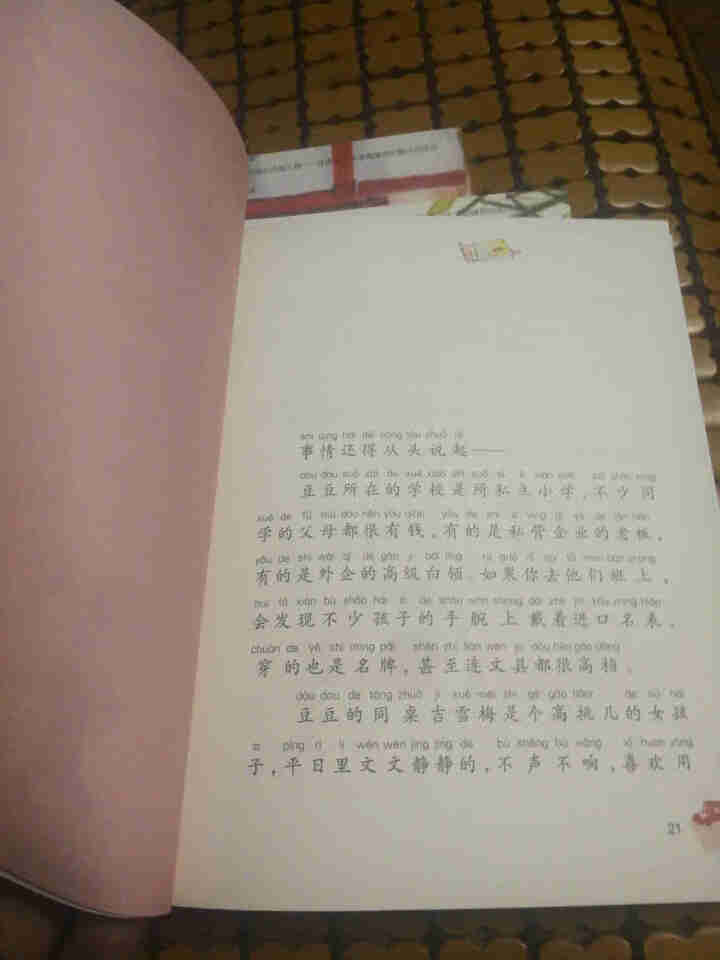 shì qing hái děi cóng tóu shuō qǐ
事情还得从头说起——
dòu dou suǒ zài de xué xiào shì suǒ sī lì xiǎo xué bù shǎo tóng
豆豆所在的学校是所私立小学,不少同
xué de fù mǔ dōu hěn yǒu qián yǒu de shì sī yíng qǐ yè de lǎo bǎn
学的父母都很有钱,有的是私营企业的老板,
yǒu de shì wài qǐ de gāo jí bái lǐng rú guǒ nǐ qù tā men bān shàng
有的是外企的高级白领。如果你去他们班上,
huì fā xiàn bù shǎo hái zi de shǒu wàn shang dài zhe jìn kǒu míng biǎo
会发现不少孩子的手腕上戴着进口名表,
chuān de yě shì míng pái shèn zhì lián wén jù dōu hěn gāo dàng
穿的也是名牌,甚至连文具都很高档。
dòu dou de tóng zhuō jí xuě méi shì gè gāo tiǎor de nǚ hái
豆豆的同桌吉雪梅是个高挑儿的女孩
zi píng rì li wén wén jìng jìng de bù shēng bù xiǎng xǐ huan yòng
子,平日里文文静静的,不声不响,喜欢用
21